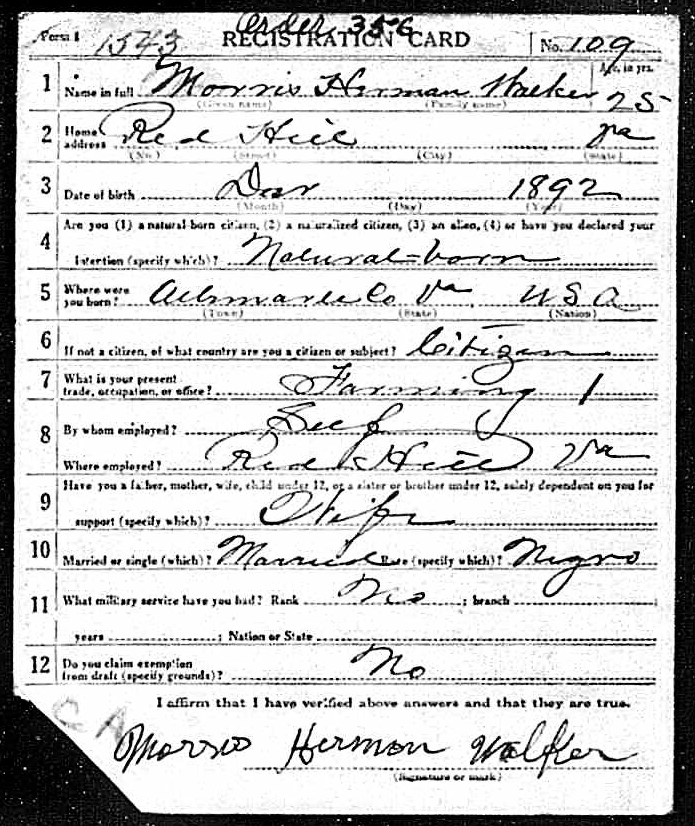 Order 356
Form 1 1543 REGISTRATION CARD No. 109
1 Name in full Morris Herman Walker Age, in yrs. 25
(Given name) (Family name)
2 Home address Red Hill Va
(No.) (Street) (City) (State)
3 Date of birth 1892
(Month) (Day) (Year)
4 Are you (1) a natural-born citizen, (2) a naturalized citizen, (3) an alien, (4) or have you declared your
intention (specify which)? Natural-born
5 Where were you born? Albmarle Co Va U S A
(Town) (State) (Nation)
6 If not a citizen, of what country are you a citizen or subject? Citizen
7 What is your present trade, occupation, or office? Farming 1
8 By whom employed? Self
Where employed? Red Hill Va
9 Have you a father, mother, wife, child under 12, or a sister or brother under 12, solely dependent on you for
support (specify which)? Wife
10 Married or single (which)? Married Race (specify which)? Negro
11 What military service have you had? Rank No ; branch
years ; Nation or State
12 Do you claim exemption from draft (specify grounds)? No
I affirm that I have verified above answers and that they are true.
C A
Morris Herman Walker
(Signature or mark)